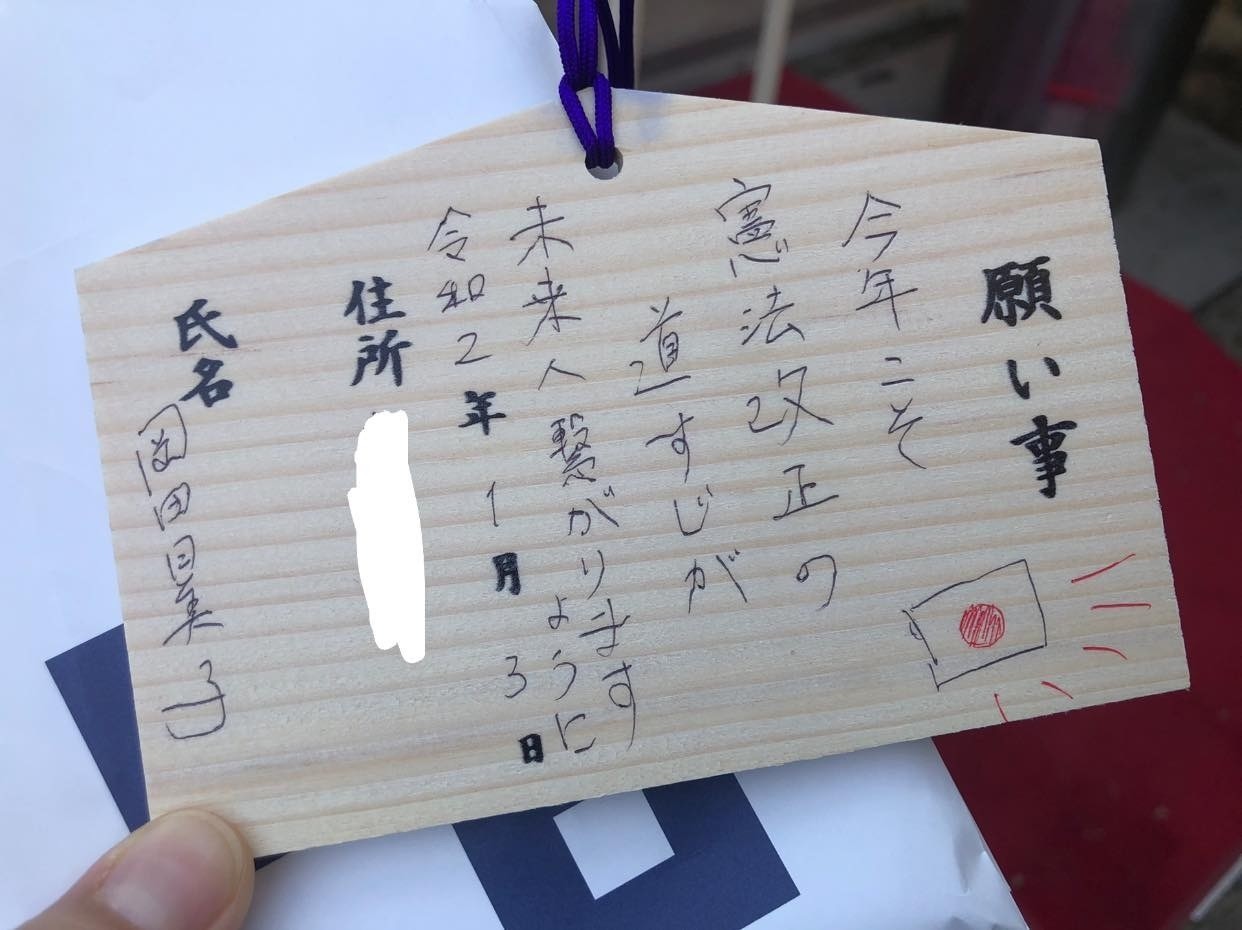 願い事
今年こそ
憲法改正の
道すじが
未来へ繋がりります
ように
令和2年1月3日
住所
氏名 岡田日美子